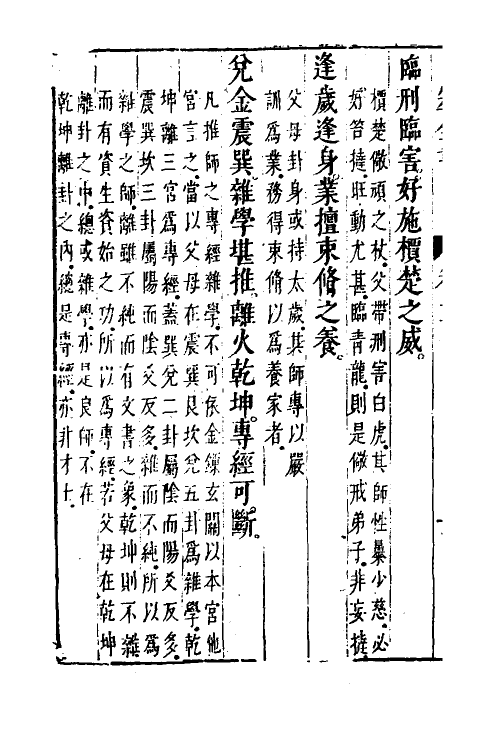 臨刑臨害。好施檟楚之威。
檟楚儆頑之杖。父帶刑害白虎。其師性暴少慈。必
好笞撻。旺動尤甚。臨青龍。則是儆戒弟子。非妄撻。
逢歲逢身。業擅束脩之養。
父母卦身或持太歲。其師專以嚴
訓爲業。務得束脩以爲養家者。
兌金震巽。雜學堪推。離火乾坤。專經可斷。
凡推師之專經雜學。不可依金鎖玄關以本宮他
宮言之。當以父母在震巽艮坎兌五卦爲雜學。乾
坤離三宮爲專經。蓋巽兌二卦屬陰而陽爻反多。
震艮坎三卦屬陽而陰爻反多。雜而不純。所以爲
雜學之師。離雖不純而有文書之象。乾坤則不雜
而有資生資始之功。所以爲專經。若父母在乾坤
離卦之中。總或雜學。亦是良師。不在
乾坤離卦之內。總是專經。亦非才士。